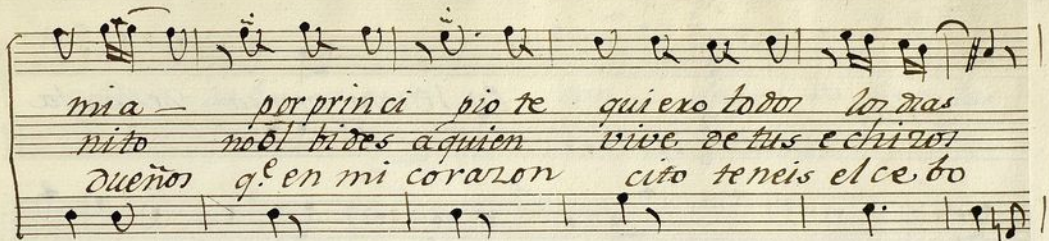 mia — por princi pio te quiero todos los dias
nito noōl bides aquien vive de tus echizos
dueños q.e en mi corazon cito teneis el cebo